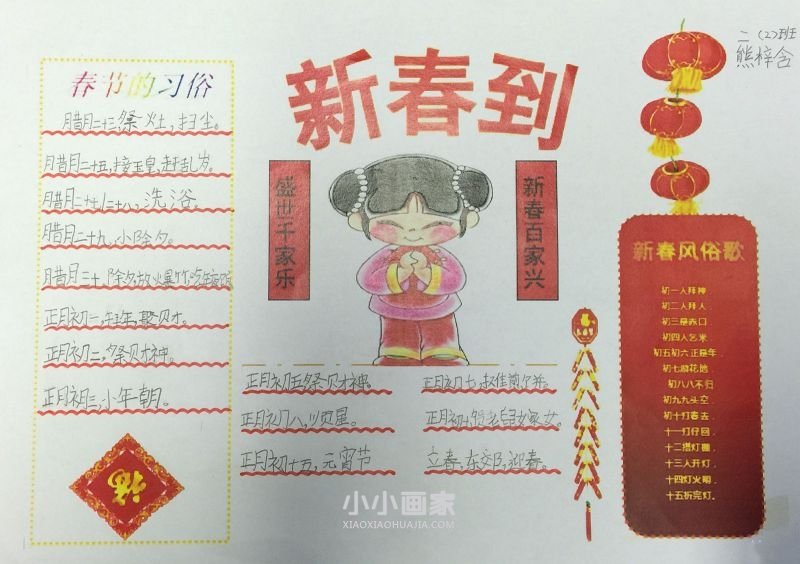 二（2）班
熊梓含
新春到
春节的习俗
腊月二十三祭灶，扫尘。
腊月二十五，接玉皇，赶乱岁。
腊月二十七/二十八，洗浴。
腊月二十九，小除夕。
腊月三十，除夕，放火爆竹，吃年夜饭
正月初一，年，聚财。
正月初二，祭财神。
正月初三，小年朝。
福
盛世千家乐
新春百家兴
正月初五祭财神。
正月初七，
正月初八，顺星。
正月初十，老鼠嫁女。
正月初十五，元宵节
立春，东郊，迎春。
新春风俗歌
初一人拜神
初二人拜人
初三是赤口
初四人乞米
初五初六正是年
初七游花地
初八八不归
初九九头空
初十打春去
十一打仔回
十二搭灯棚
十三人开灯
十四灯火明
十五祈完灯。
小小画家
XIAOXIAOHUAJIA.COM